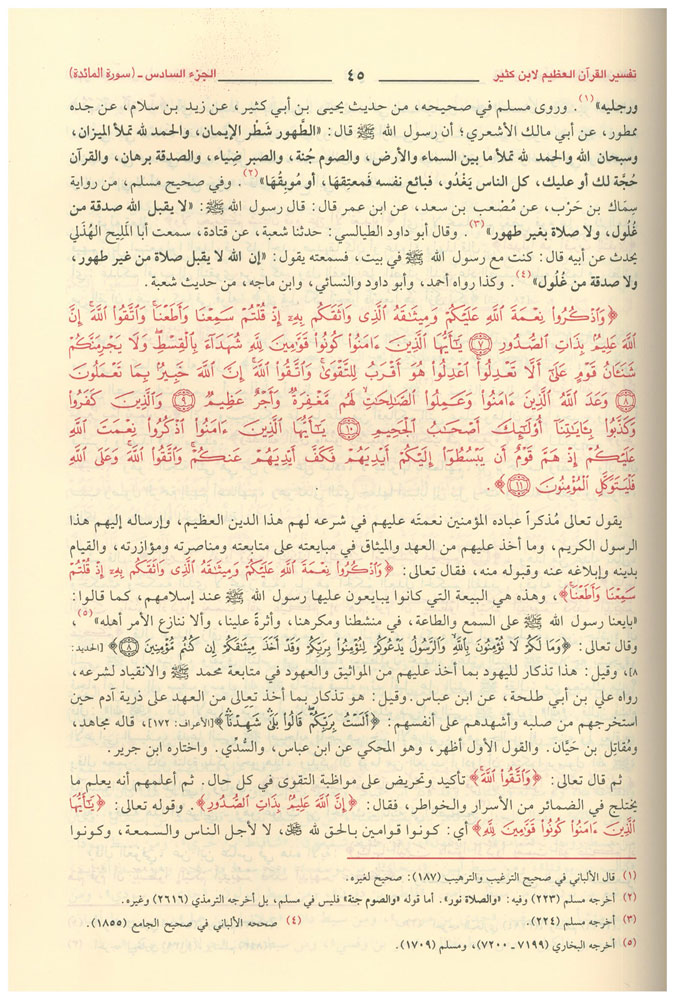 تفسير القرآن العظيم لابن كثير ٤٥ الجزء السادس ـ (سورة المائدة)
ورجليه»(١). وروى مسلم في صحيحه، من حديث يحيى بن أبي كثير، عن زيد بن سلام، عن جده
ممطور، عن أبي مالك الأشعري؛ أن رسول الله ﷺ قال: «الطَّهور شَطْر الإيمان، والحمد لله تملأ الميزان،
وسبحان الله والحمد لله تملأ ما بين السماء والأرض، والصوم جُنة، والصبر ضِياء، والصدقة برهان، والقرآن
حُجَّة لك أو عليك، كل الناس يَغْدُو، فبائع نفسه فَمعتِقهَا، أو مُوبِقُهَا»(٢). وفي صحيح مسلم، من رواية
سِمَاك بن حَرْب، عن مُصْعَب بن سعد، عن ابن عمر قال: قال رسول الله ﷺ: «لا يقبل الله صدقة من
غُلُول، ولا صلاة بغير طهور»(٣). وقال أبو داود الطيالسي: حدثنا شعبة، عن قتادة، سمعت أبا المَلِيح الهُذَلي
يحدث عن أبيه قال: كنت مع رسول الله ﷺ في بيت، فسمعته يقول: «إن الله لا يقبل صلاة من غير طهور،
ولا صدقة من غُلُول»(٤). وكذا رواه أحمد، وأبو داود والنسائي، وابن ماجه، من حديث شعبة.
﴿وَٱذْكُرُوا۟ نِعْمَةَ ٱللَّهِ عَلَيْكُمْ وَمِيثَٰقَهُ ٱلَّذِى وَاثَقَكُم بِهِۦٓ إِذْ قُلْتُمْ سَمِعْنَا وَأَطَعْنَا ۖ وَٱتَّقُوا۟ ٱللَّهَ ۚ إِنَّ
ٱللَّهَ عَلِيمٌۢ بِذَاتِ ٱلصُّدُورِ ۝٧ يَٰٓأَيُّهَا ٱلَّذِينَ ءَامَنُوا۟ كُونُوا۟ قَوَّٰمِينَ لِلَّهِ شُهَدَآءَ بِٱلْقِسْطِ ۖ وَلَا يَجْرِمَنَّكُمْ
شَنَـَٔانُ قَوْمٍ عَلَىٰٓ أَلَّا تَعْدِلُوا۟ ۚ ٱعْدِلُوا۟ هُوَ أَقْرَبُ لِلتَّقْوَىٰ ۖ وَٱتَّقُوا۟ ٱللَّهَ ۚ إِنَّ ٱللَّهَ خَبِيرٌۢ بِمَا تَعْمَلُونَ
۝٨ وَعَدَ ٱللَّهُ ٱلَّذِينَ ءَامَنُوا۟ وَعَمِلُوا۟ ٱلصَّٰلِحَٰتِ ۙ لَهُم مَّغْفِرَةٌ وَأَجْرٌ عَظِيمٌ ۝٩ وَٱلَّذِينَ كَفَرُوا۟
وَكَذَّبُوا۟ بِـَٔايَٰتِنَآ أُو۟لَٰٓئِكَ أَصْحَٰبُ ٱلْجَحِيمِ ۝١٠ يَٰٓأَيُّهَا ٱلَّذِينَ ءَامَنُوا۟ ٱذْكُرُوا۟ نِعْمَتَ ٱللَّهِ
عَلَيْكُمْ إِذْ هَمَّ قَوْمٌ أَن يَبْسُطُوٓا۟ إِلَيْكُمْ أَيْدِيَهُمْ فَكَفَّ أَيْدِيَهُمْ عَنكُمْ ۖ وَٱتَّقُوا۟ ٱللَّهَ ۚ وَعَلَى ٱللَّهِ
فَلْيَتَوَكَّلِ ٱلْمُؤْمِنُونَ ۝١١﴾.
يقول تعالى مُذكراً عباده المؤمنين نعمتَه عليهم في شرعه لهم هذا الدين العظيم، وإرساله إليهم هذا
الرسول الكريم، وما أخذ عليهم من العهد والميثاق في مبايعته على متابعته ومناصرته ومؤازرته، والقيام
بدينه وإبلاغه عنه وقبوله منه، فقال تعالى: ﴿وَٱذْكُرُوا۟ نِعْمَةَ ٱللَّهِ عَلَيْكُمْ وَمِيثَٰقَهُ ٱلَّذِى وَاثَقَكُم بِهِۦٓ إِذْ قُلْتُمْ
سَمِعْنَا وَأَطَعْنَا﴾، وهذه هي البيعة التي كانوا يبايعون عليها رسول الله ﷺ عند إسلامهم، كما قالوا:
«بايعنا رسول الله ﷺ على السمع والطاعة، في منشطنا ومكرهنا، وأثرةً علينا، وألا ننازع الأمر أهله»(٥)،
وقال تعالى: ﴿وَمَا لَكُمْ لَا تُؤْمِنُونَ بِٱللَّهِ ۙ وَٱلرَّسُولُ يَدْعُوكُمْ لِتُؤْمِنُوا۟ بِرَبِّكُمْ وَقَدْ أَخَذَ مِيثَٰقَكُمْ إِن كُنتُم مُّؤْمِنِينَ ۝٨﴾ [الحديد:
٨]، وقيل: هذا تذكار لليهود بما أخذ عليهم من المواثيق والعهود في متابعة محمد ﷺ والانقياد لشرعه،
رواه علي بن أبي طلحة، عن ابن عباس. وقيل: هو تذكار بما أخذ تعالى من العهد على ذرية آدم حين
استخرجهم من صلبه وأشهدهم على أنفسهم: ﴿أَلَسْتُ بِرَبِّكُمْ ۖ قَالُوا۟ بَلَىٰ ۛ شَهِدْنَآ﴾ [الأعراف: ١٧٢]، قاله مجاهد،
ومُقاتِل بن حَيَّان. والقول الأول أظهر، وهو المحكي عن ابن عباس، والسُّدِّي. واختاره ابن جرير.
ثم قال تعالى: ﴿وَٱتَّقُوا۟ ٱللَّهَ﴾ تأكيد وتحريض على مواظبة التقوى في كل حال. ثم أعلمهم أنه يعلم ما
يختلج في الضمائر من الأسرار والخواطر، فقال: ﴿إِنَّ ٱللَّهَ عَلِيمٌۢ بِذَاتِ ٱلصُّدُورِ﴾. وقوله تعالى: ﴿يَٰٓأَيُّهَا
ٱلَّذِينَ ءَامَنُوا۟ كُونُوا۟ قَوَّٰمِينَ لِلَّهِ﴾ أي: كونوا قوامين بالحق لله ﷻ، لا لأجل الناس والسمعة، وكونوا
(١) قال الألباني في صحيح الترغيب والترهيب (١٨٧): صحيح لغيره.
(٢) أخرجه مسلم (٢٢٣) وفيه: «والصلاة نور». أما قوله «والصوم جنة» فليس في مسلم، بل أخرجه الترمذي (٢٦١٦) وغيره.
(٣) أخرجه مسلم (٢٢٤). (٤) صححه الألباني في صحيح الجامع (١٨٥٥).
(٥) أخرجه البخاري (٧١٩٩ ـ ٧٢٠٠)، ومسلم (١٧٠٩).